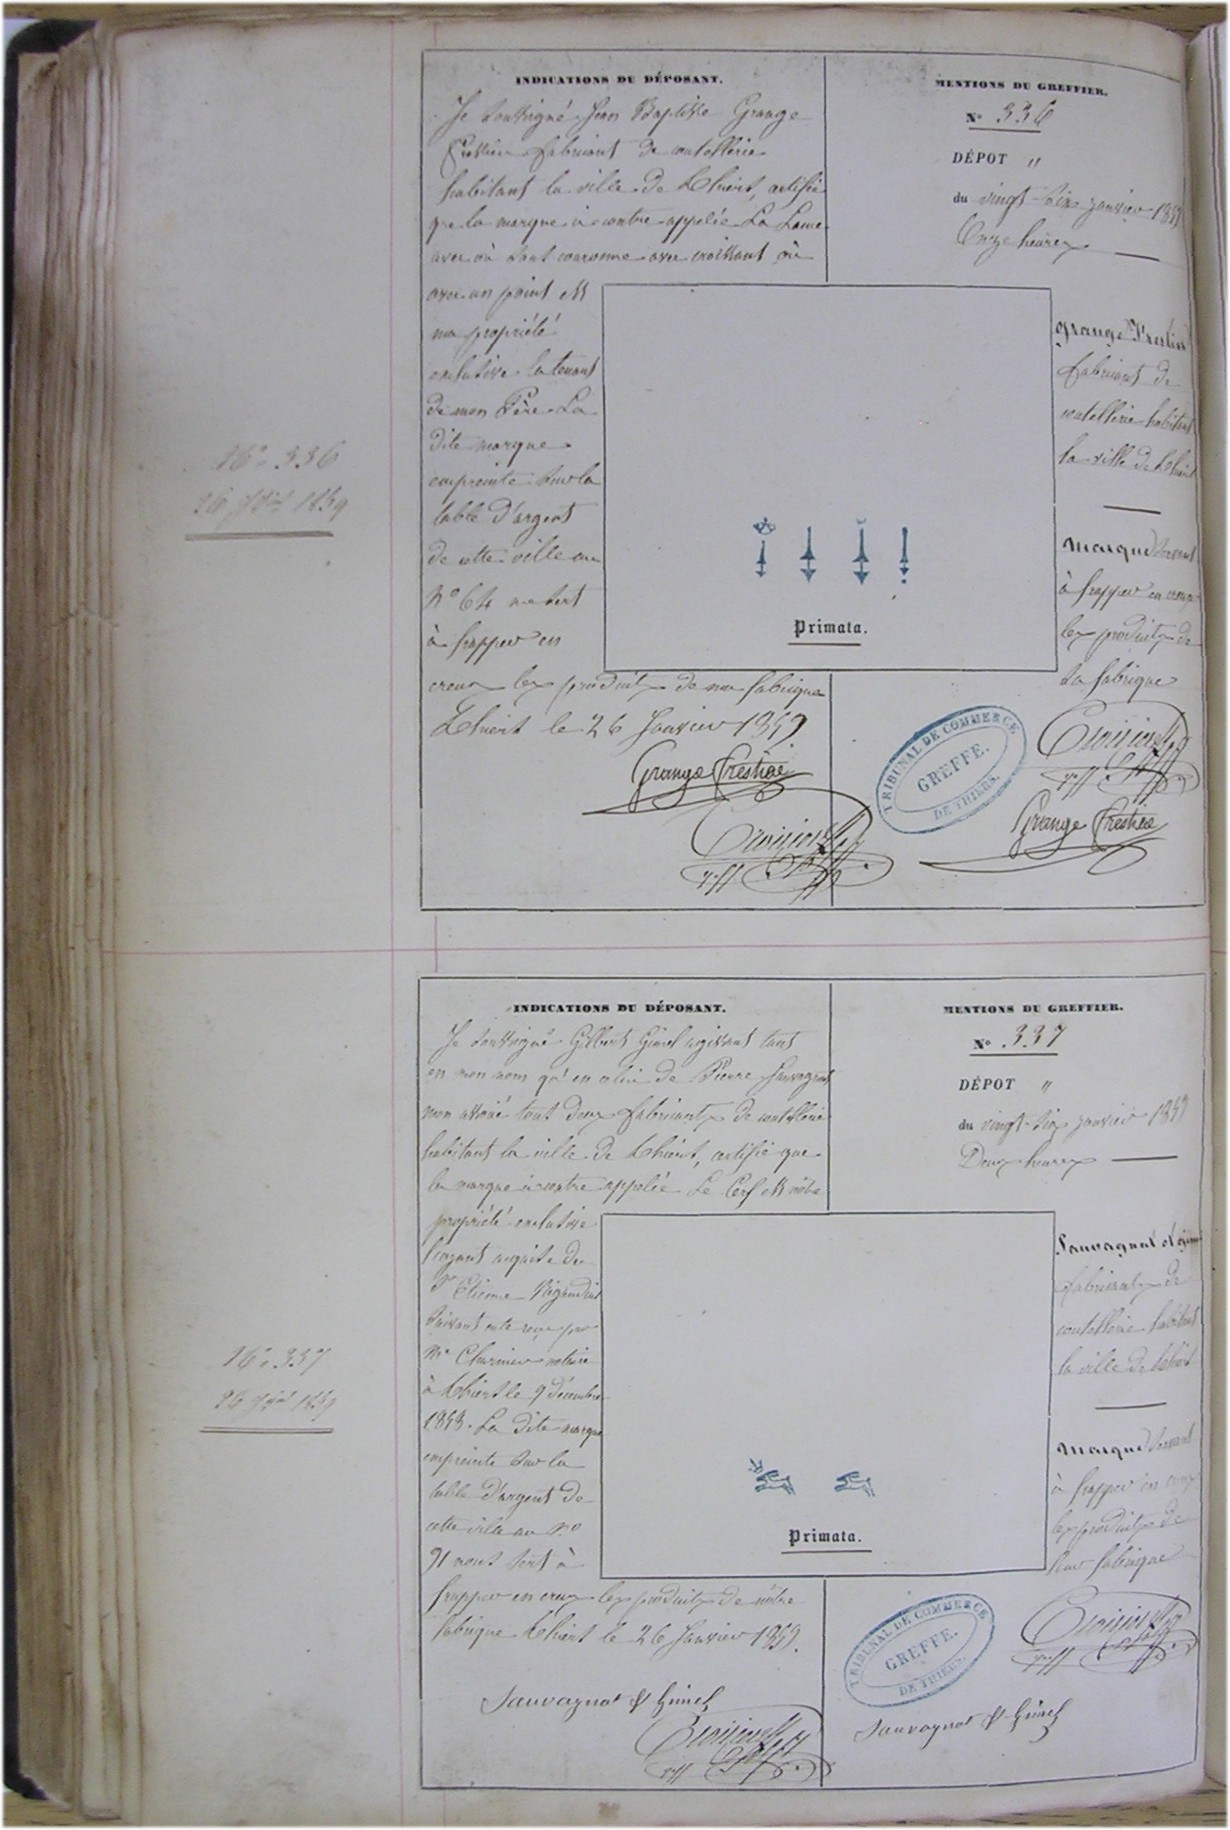 INDICATIONS DU DÉPOSANT.
Je soussigné Jean Baptiste Grange
fabricant de coutellerie
habitant la ville de Thiers, certifie
que la marque ci contre appelée La Lame
avec ou sans couronne avec croissant ou
avec un point est
ma propriété
exclusive la tenant
de mon Père. La
dite marque
empreinte sur la
table d'argent
de cette ville au
N° 64 me sert
à frapper en
creux les produits de ma fabrique
Thiers le 26 Janvier 1859
Grange
MENTIONS DU GREFFIER.
N° 336
DÉPOT "
du vingt-six janvier 1859
Onze heures
Grange
fabricant de
coutellerie habitant
la ville de Thiers
Marque servant
à frapper en creux
les produits de
sa fabrique
Primata.
TRIBUNAL DE COMMERCE
GREFFE.
DE THIERS.
Grange
N° 336
26 Jver 1859
INDICATIONS DU DÉPOSANT.
Je soussigné Gilbert Ginel agissant tant
en mon nom qu'en celui de Pierre Sauvagnat
mon associé tous deux fabricants de coutellerie
habitant la ville de Thiers, certifie que
la marque ci contre appelée Le Cerf est nôtre
propriété exclusive
l'ayant acquise du
Sr Etienne
suivant acte reçu par
Me notaire
à Thiers le 9 décembre
1858. La dite marque
empreinte sur la
table d'argent de
cette ville au N°
91 nous sert à
frapper en creux les produits de nôtre
fabrique Thiers le 26 Janvier 1859.
Sauvagnat & Ginel
MENTIONS DU GREFFIER.
N° 337
DÉPOT "
du vingt-six janvier 1859
Deux heures
Sauvagnat et Ginel
fabricants de
coutellerie habitant
la ville de Thiers
Marque servant
à frapper en creux
les produits de
leur fabrique
Primata.
TRIBUNAL DE COMMERCE
GREFFE.
DE THIERS.
Sauvagnat & Ginel
N° 337
26 Jver 1859